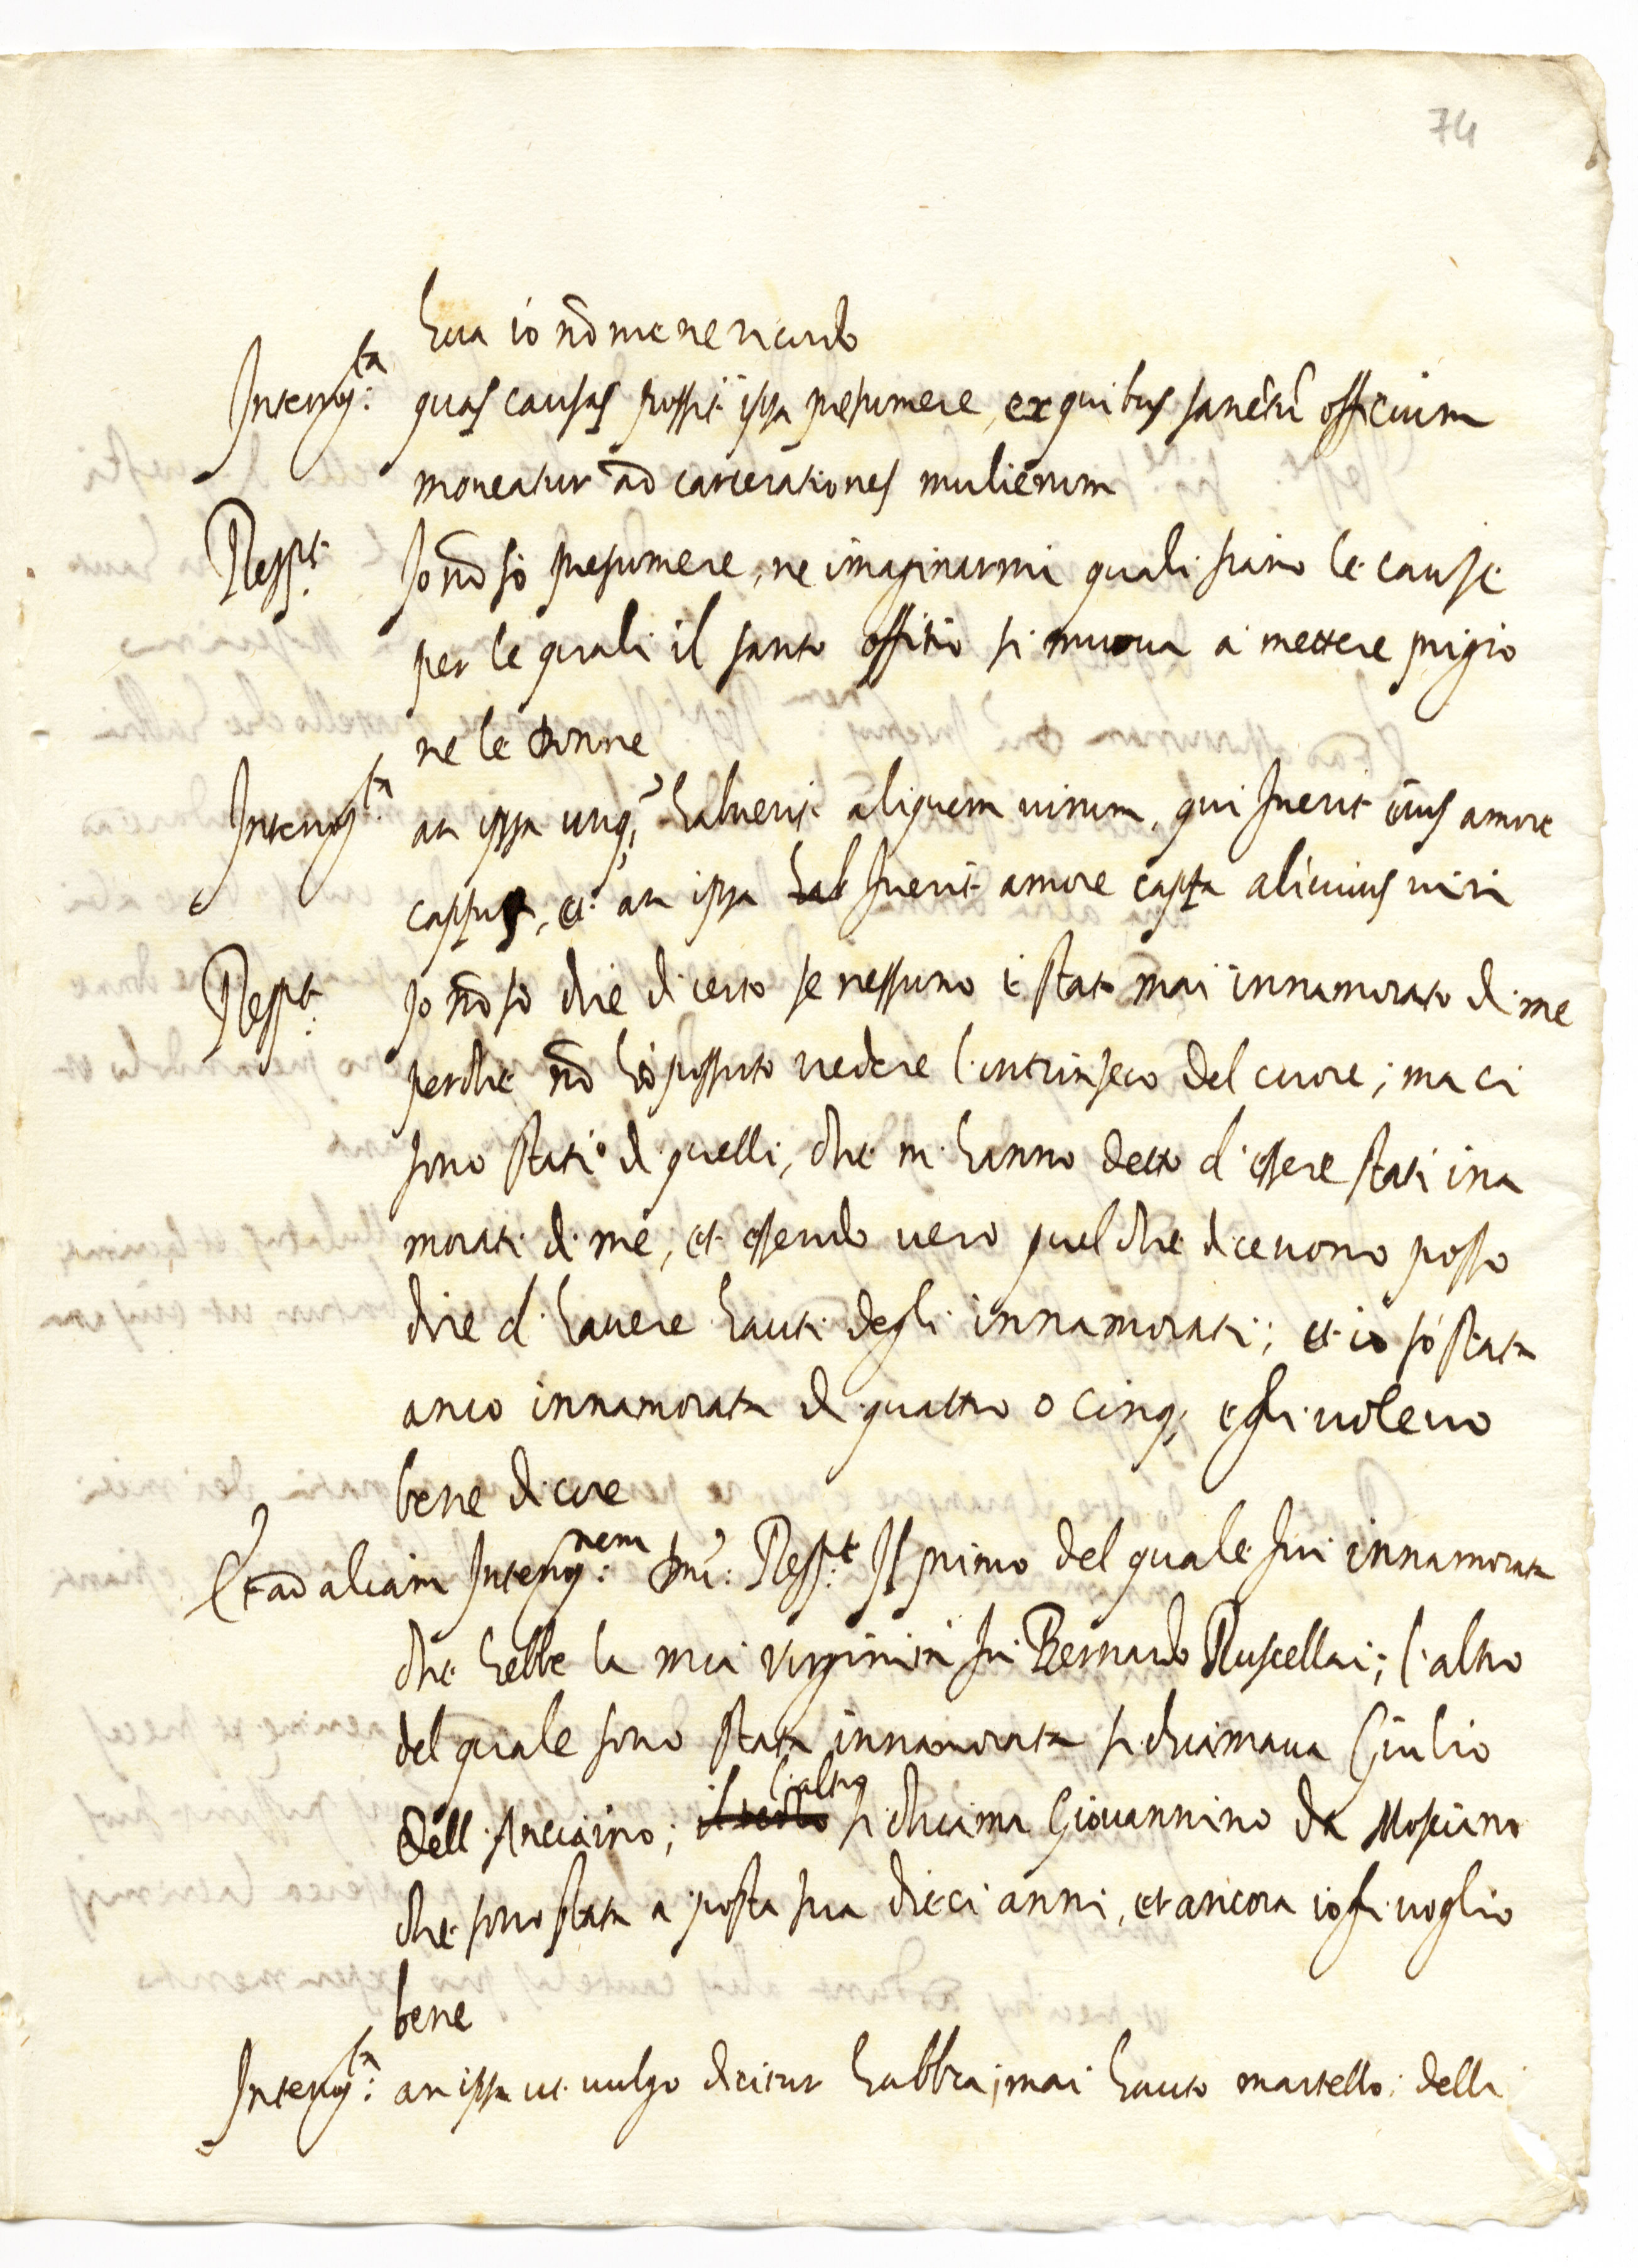 74
hua io nō me ne ricordo
Interrog:ta quas causas possit ipsa presumere, ex quibus sanctū officium
moueatur ad carcerationes mulierum
Resp.t Io nō so presumere, ne imaginarmi quali siano le cause
per le quali il santo offitio si muoua a mettere prigio
ne le donne
Interrog:ta an ipsa unq; habuerit aliquem uirum, qui fuerit eius amore
captus, et an ipsa hab fuerit amore capta alicuius uiri
Resp.t: Io nō so dire di certo se nessuno è stato mai innamorato di me
perche nō hò possuto uedere l'intrinseco del cuore; ma ci
sono stati di quelli, che m'hanno detto d'essere stati ina
morati di me, et essendo uero quel che diceuono posso
dire d'hauere hauti degli innamorati; et io so stata
anco innamorata di quattro o cinq; e gli uoleuo
bene di cuore
Et ad aliam Interrog:nem Dni: Resp:t Il primo del quale fui innamorata
che hebbe la mia virginità fu Bernardo Ruscellai; l'altro
del quale sono stata innamorata si chiamaua Giulio
dell'Ancaino; il terzo l'altro si chiama Giouannino da Mosciano
che sono stata a posta sua dieci anni, et ancora io gli uoglio
bene
Interrog:ta an ipsa ut uulgo dicitur habbia mai hauto martello delli